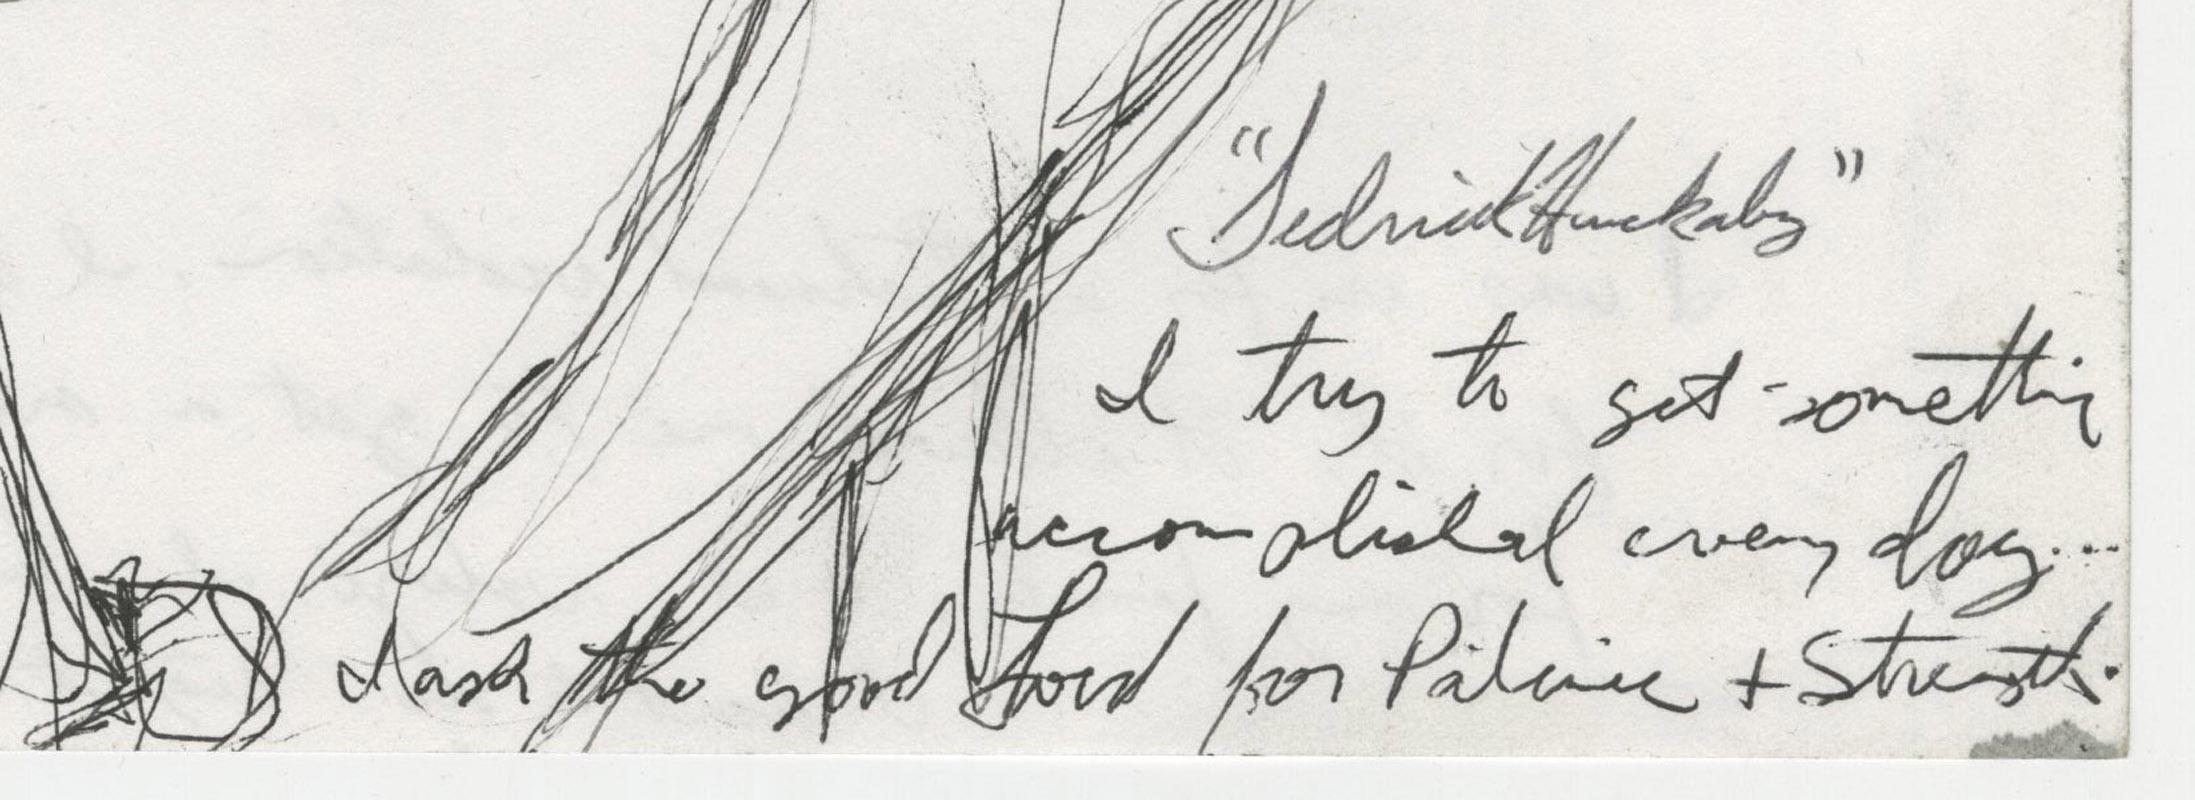 "Sedrick Huckaby"
I try to get something
accomplished every day...
I ask the good Lord for Patience + Strength.